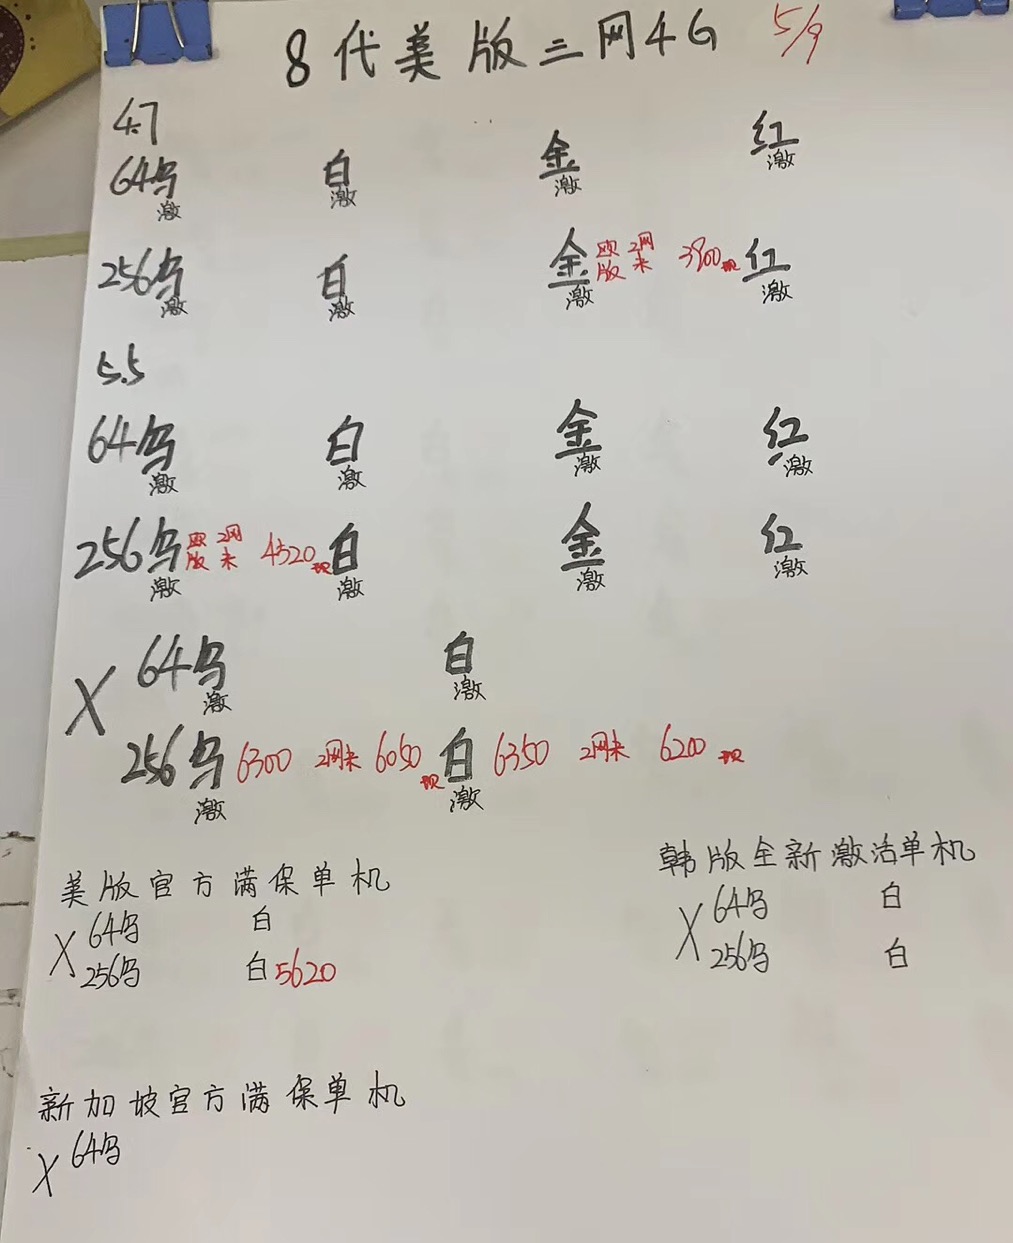 8代美版三网4G 5/9
4.7
64乌激 白激 金激 红激
256乌激 白激 金激 欧版 2网未 3900现 红激
5.5
64乌激 白激 金激 红激
256乌激 欧版 2网未 4520现 白激 金激 红激
X 64乌激 白激
256乌激 6300 2网未 6050现 白激 6350 2网未 6200现
美版官方满保单机
X 64乌 白
256乌 白 5620
韩版全新激活单机
X 64乌 白
256乌 白
新加坡官方满保单机
X 64乌